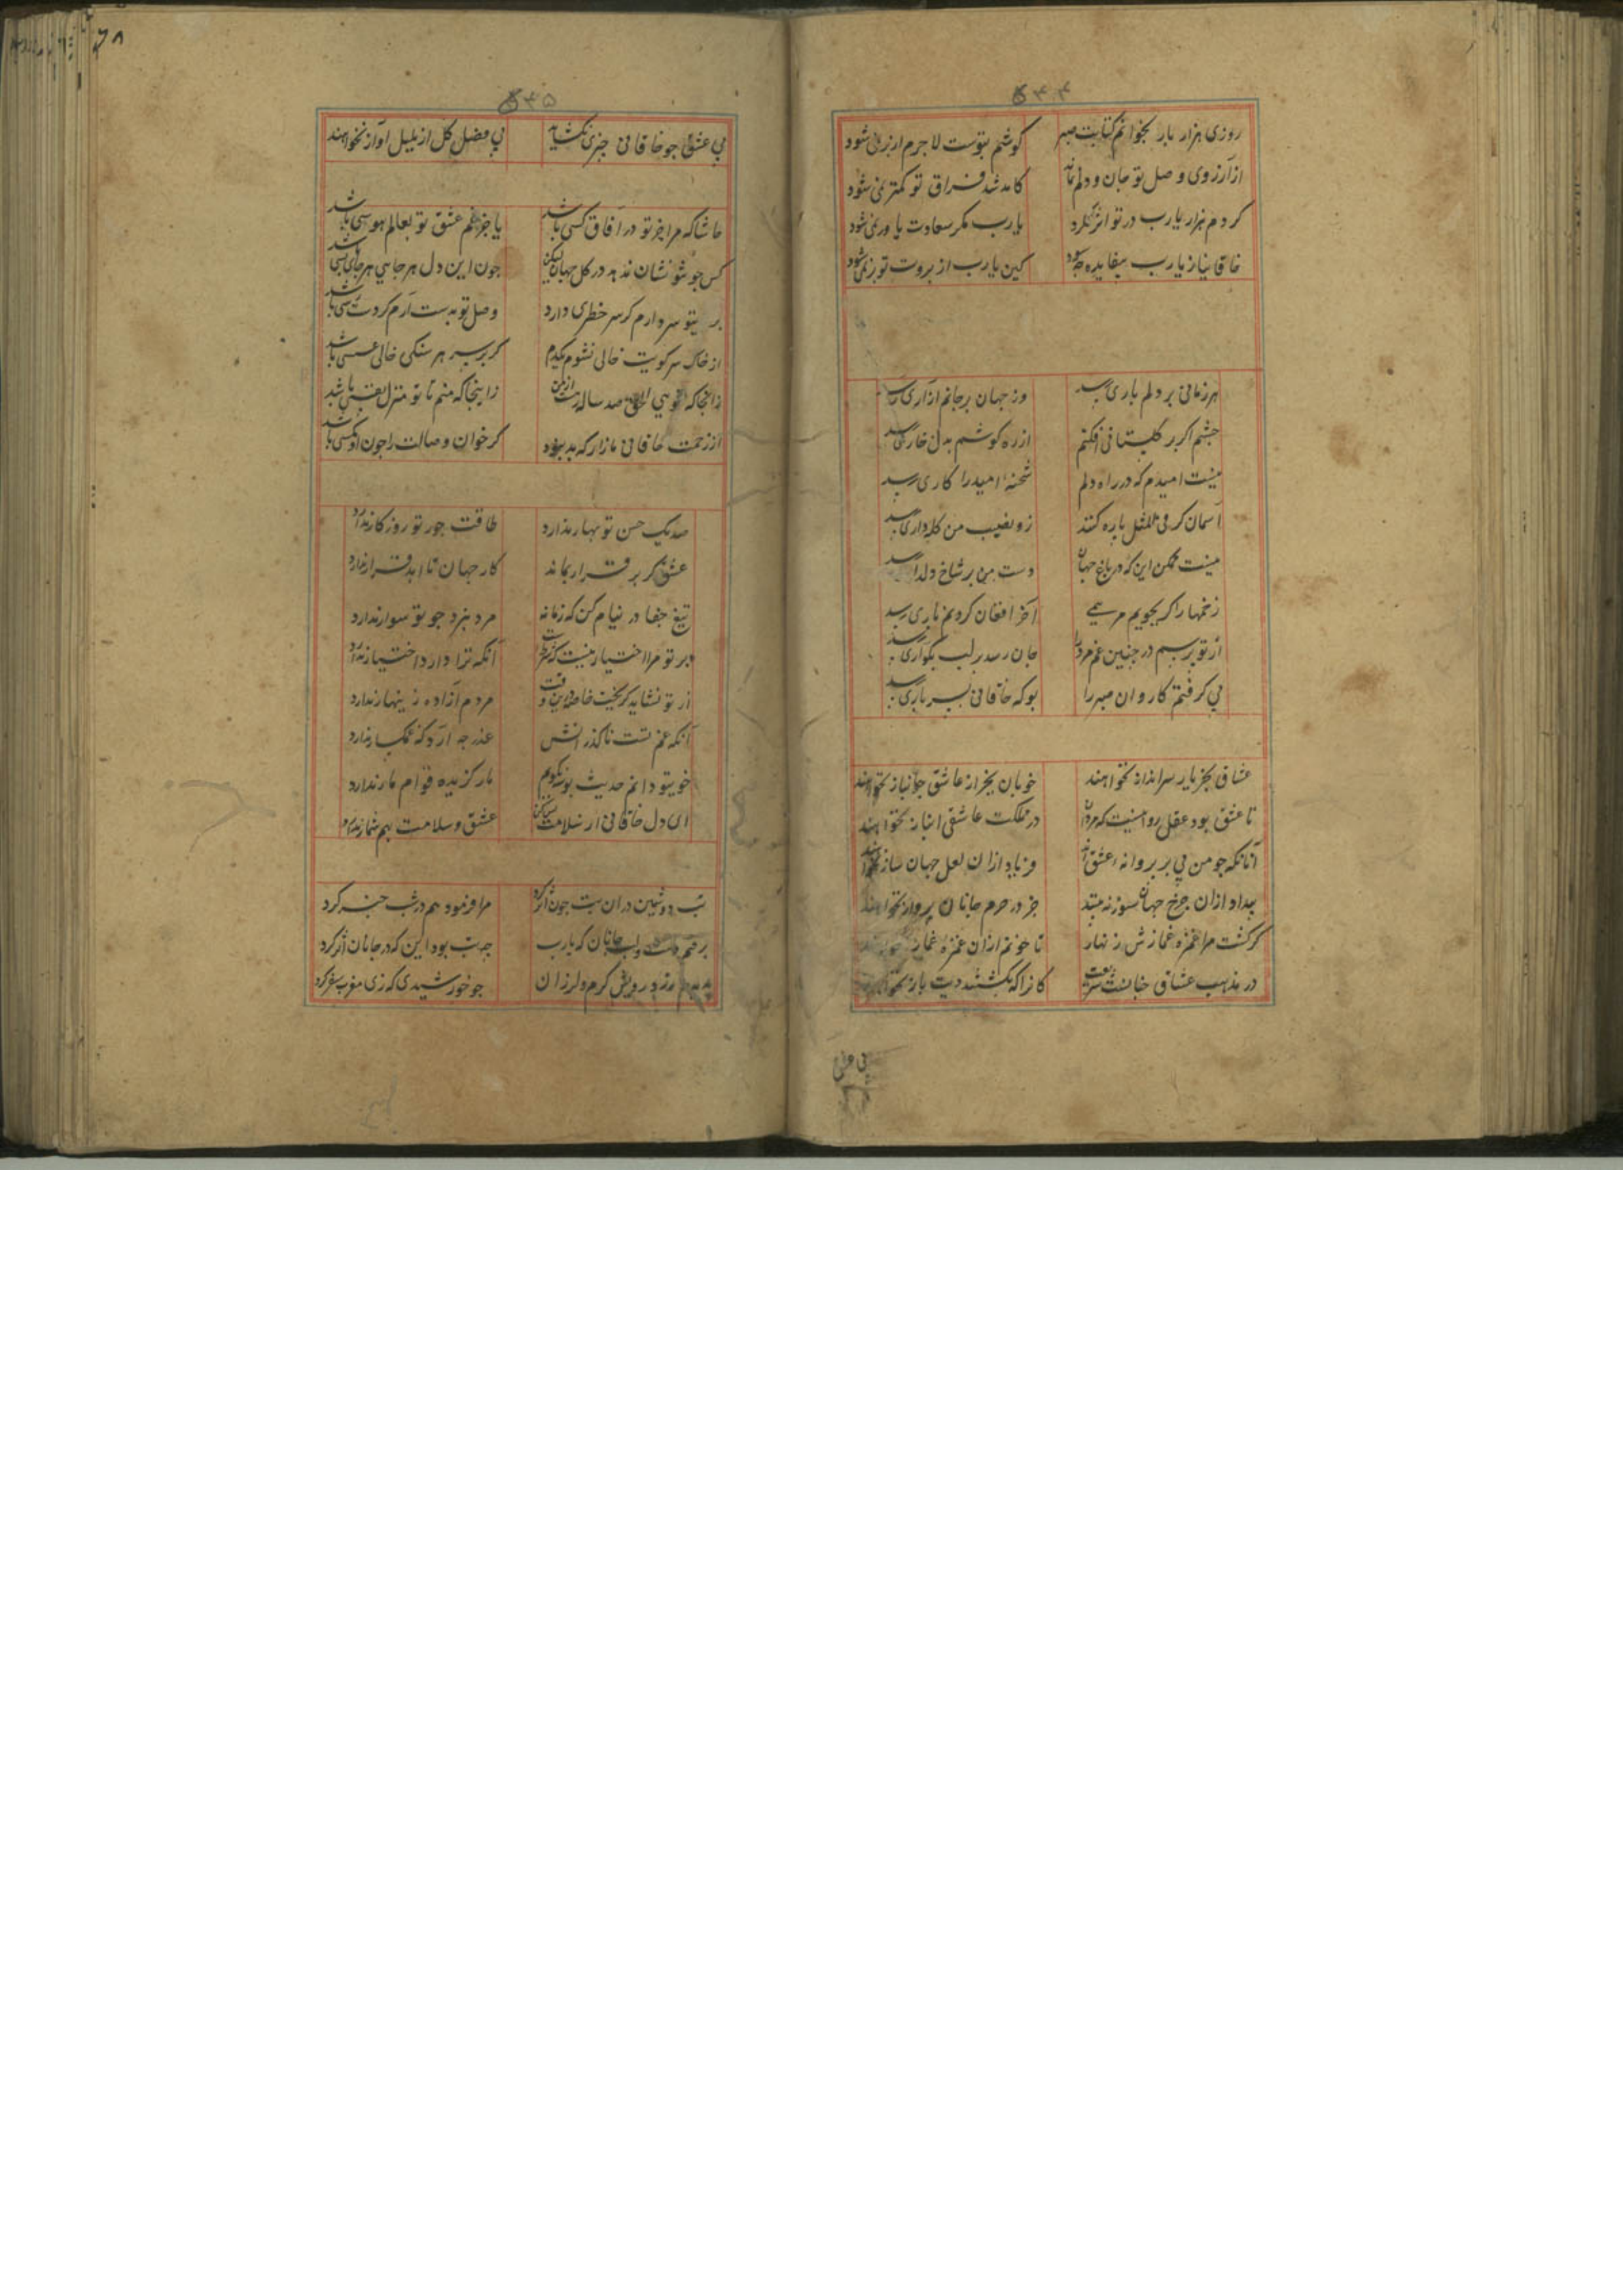 ۵۴۴
روزی هزار بار بخوانم کتابت صبر کوشم بتوست لا جرم از بر نمی شود
از آرزوی وصل تو جان و دلم نماند کامد شد فراق تو کمتر نمی شود
کردم هزار یارب در تو اثر نکرد یارب مکر سعادت یاور نمی شود
خاقانیا ز یارب بیفایده چه سود کین یارب از بروت تو بر نمی شود
هر زمانی بر دلم باری رسد وز جهان بر جانم آزاری رسد
جشم اکر بر کلستانی افکنم از ره کوشم بدل خاری رسد
نیست امیدم که در راه دلم شحنه امید را کاری رسد
آسمان کر فی المثل پاره کند زو نصیب من کله داری رسد
نیست ممکن این که در باغ جهان دست من بر شاخ دلداری رسد
زخمها را کر بجویم مرهمی آخر افغان کردنم باری رسد
از تو برسم در جنین غم مرد را جان رسد بر لب بکو آری رسد
پی کرفتم کاروان صبر را بو که خاقانی بسر باری رسد
عشاق بجز یار سرانداز نخواهند خوبان بجز از عاشق جانباز نخواهند
تا عشق بود عقل روا نیست که مردان در مملکت عاشقی انباز نخواهند
آنانکه جو من بی پر پروانه عشق اند جز در حرم جانان پرواز نخواهند
بیداد ازان جزع جهانسوز نه بینند فریاد ازان لعل جهان ساز نخواهند
کر کشت مرا غمزه غمازش زنهار تا خونم ازان غمزه غماز نخواهند
در مذهب عشاق جنانست شریعت کانرا که بکشتند دیت باز نخواهند
بی عشق
۵۴۵
بی عشق جو خاقانی جیزی نکشاید بی فصل کل از بلبل آواز نخواهند
حاشا که مرا جز تو در آفاق کسی باشد یا جز غم عشق تو بعالم هوسی باشد
کس جو تو نشان ندهد در کل جهان لیکن جون این دل هر جایی هر جای بسی باشد
بر تو سر دارم کر سر خطری دارد وصل تو بدست آرم کر دست رسی باشد
از خاک سر کویت خالی نشوم یکدم کر بر سر هر سنکی خالی عسسی باشد
زانجا که تویی الحق صد ساله رهست از من زاینجا که منم تا تو منزل نفسی باشد
از زحمت خاقانی مازار که بد نبود کر خوان وصالت را جون او مکسی باشد
صد یک حسن تو بهار ندارد طاقت جور تو روزکار ندارد
عشق کر بر قرار بماند کار جهان تا ابد قرار ندارد
تیغ جفا در نیام کن که زمانه مرد نبرد جو تو سوار ندارد
بر تو مرا اختیار نیست که شرطست آنکه ترا دارد اختیار ندارد
از تو نشاید کریخت خاصه درین وقت مردم آزاده زینهار ندارد
آنکه غم تست ناکذرانش عذر جه آرد که غمکسار ندارد
خوی تو دانم حدیث بوسه نکویم مار کزیده قوام مار ندارد
ای دل خاقانی از سلامت بس کن عشق و سلامت بهم شمار ندارد
تب دوشین دران بت جون اثر کرد مرا فرمود هم در شب خبر کرد
برفتم دست و لب خایان که یارب جه تب بود این که در جانان اثر کرد
بدیدم زرد رویش کرم و لرزان جو خورشیدی که زی مغرب سفر کرد